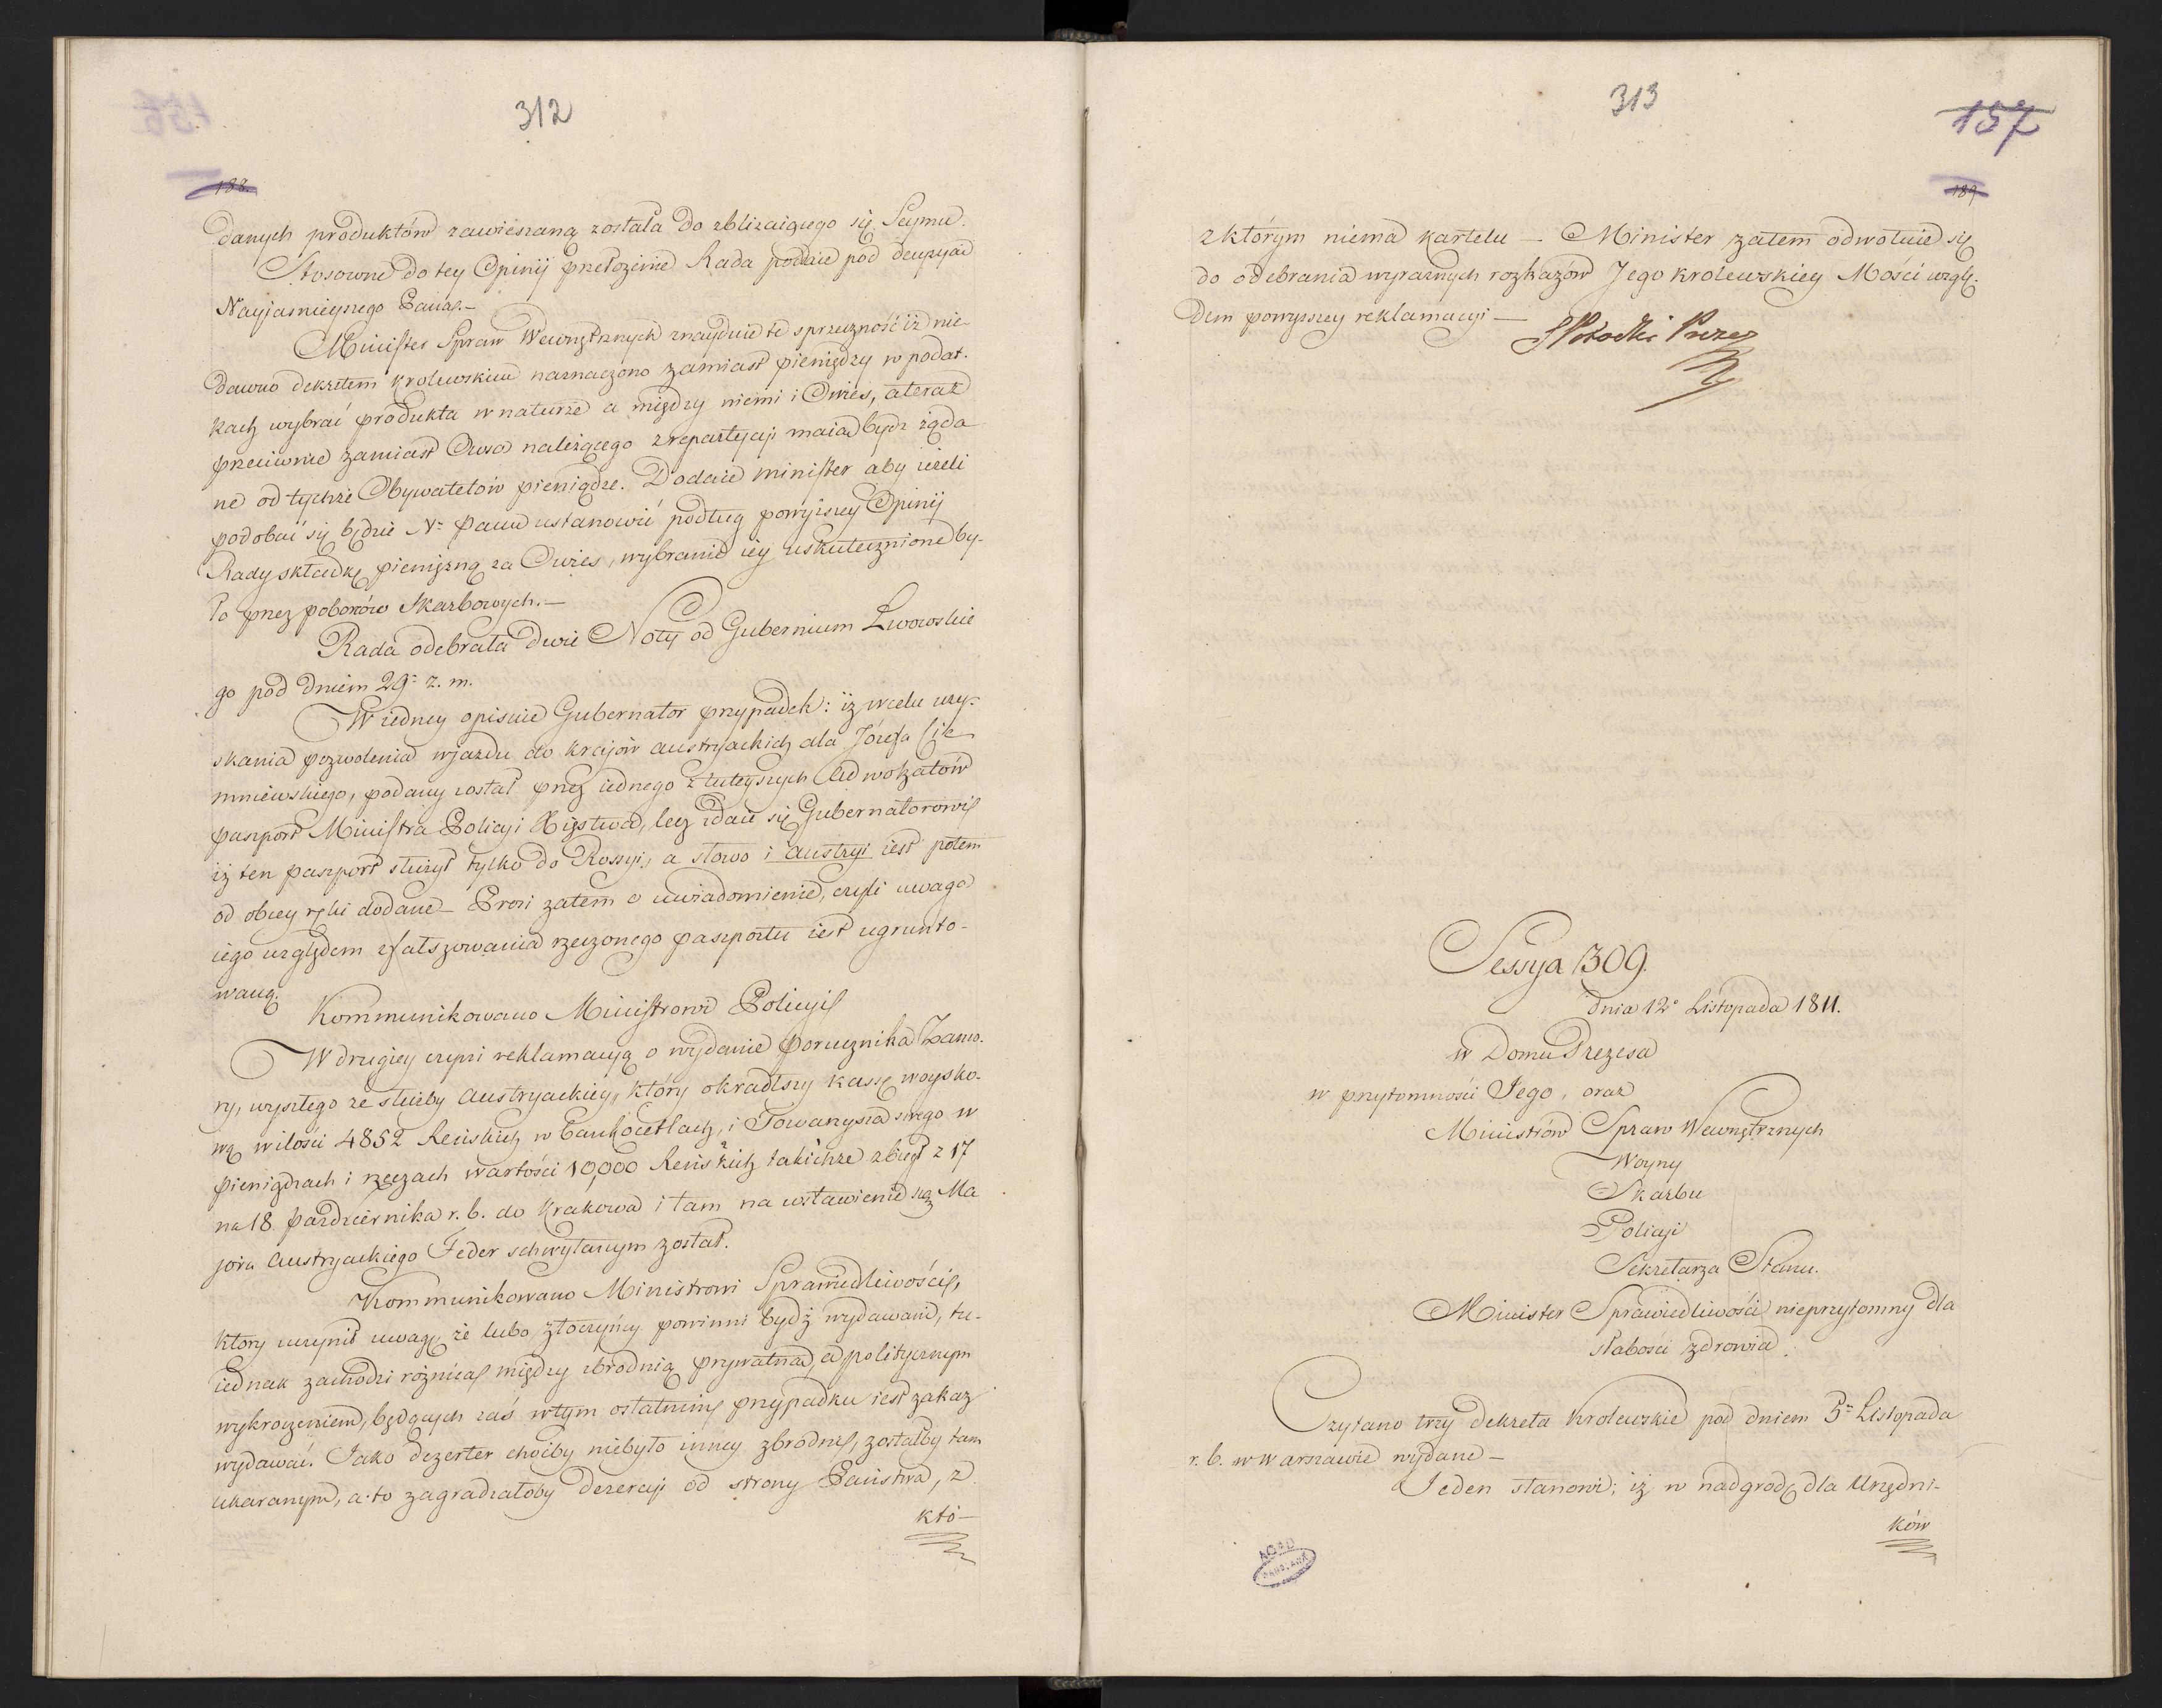 312
188.
danych produktów zawieszaną została do zbliżaiącego się Seymu.
Stosowne do tey Opinij przełożenie Rada poddaie pod decyzyą
Nayjasnieyszego Pana.—
Minister Spraw Wewnętrznych znayduie tę sprzeczność iż nie-
dawno dekretem krolewskim naznaczono zamiast pieniędzy w podat-
kach wybrać produkta w naturze a między niemi i Owies, a teraz
przeciwnie zamiast Owsa należącego z repartycyi maią bydź żąda
ne od tychże Obywatelów pieniądze. Dodaie Minister aby ieżeli
podobać się będzie N. Panu ustanowić podług powyższey Opinij
Rady składkę pieniężną za Owies, wybranie iey uskutecznione by-
ło przez poborów Skarbowych.—
Rada odebrała dwie Noty od Gubernium Lwowskie
go pod dniem 29. z. m.
W iedney opisuie Gubernator przypadek: iż w celu uzy-
skania pozwolenia wjazdu do krajów austryackich dla Józefa Sie
mniewskiego, podany został przez iednego z tuteyszych Adwokatów
paszport Ministra Policyi Xięstwa, lecz zdaie się Gubernatorowi
iż ten paszport służył tylko do Rossyi, a słowo i Austryi iest potem
od obcey ręki dodane— Prosi zatem o uwiadomienie, czyli uwaga
iego względem sfałszowania rzeczonego paszportu iest ugrunto-
waną.
Kommunikowano Ministrowi Policyi
W drugiey czyni reklamacyą o wydanie porucznika Zawo-
ry, wyszłego ze służby Austryackiey, który okradłszy kassę woysko-
wą w ilości 4852 Reńskich w Bankocetlach, i Towarzysza swego w
pieniądzach i rzeczach wartości 10,000 Reńskich takichże zbiegł z 17
na 18 Października r. b. do Krakowa i tam na wstawienie się Ma
jora Austryackiego Feder schwytanym został.
Kommunikowano Ministrowi Sprawiedliwości,
który uczynił uwagę, że lubo złoczyńcy powinni bydź wydawani, tu-
iednak zachodzi różnica między zbrodnią prywatną, a politycznym
wykroczeniem, będących zaś w tym ostatnim przypadku iest zakaz
wydawać. Jako dezerter choćby niebyło inney zbrodni, zostałby tam
ukaranym, a to zagradzałoby dezercyi od strony Państwa, z
któ-
313
157
189
z którym niema kartelu — Minister zatem odwołuie się
do odebrania wyraźnych rozkazów Jego Krolewskiey Mości wzglę-
dem powyższey reklamacyi —
SPotocki Prezes
Sessya 309.
dnia 12° Listopada 1811.
w Domu Prezesa
w przytomności Jego, oraz
Ministrów Spraw Wewnętrznych
Woyny
Skarbu
Policyi
Sekretarza Stanu.
Minister Sprawiedliwości nieprzytomny dla
słabości zdrowia.
Czytano trzy dekreta Krolewskie pod dniem 5. Listopada
r. b. w Warszawie wydane —
Jeden stanowi; iż w nadgrodę dla Urzędni-
ków
AGAD
WARSZAWA